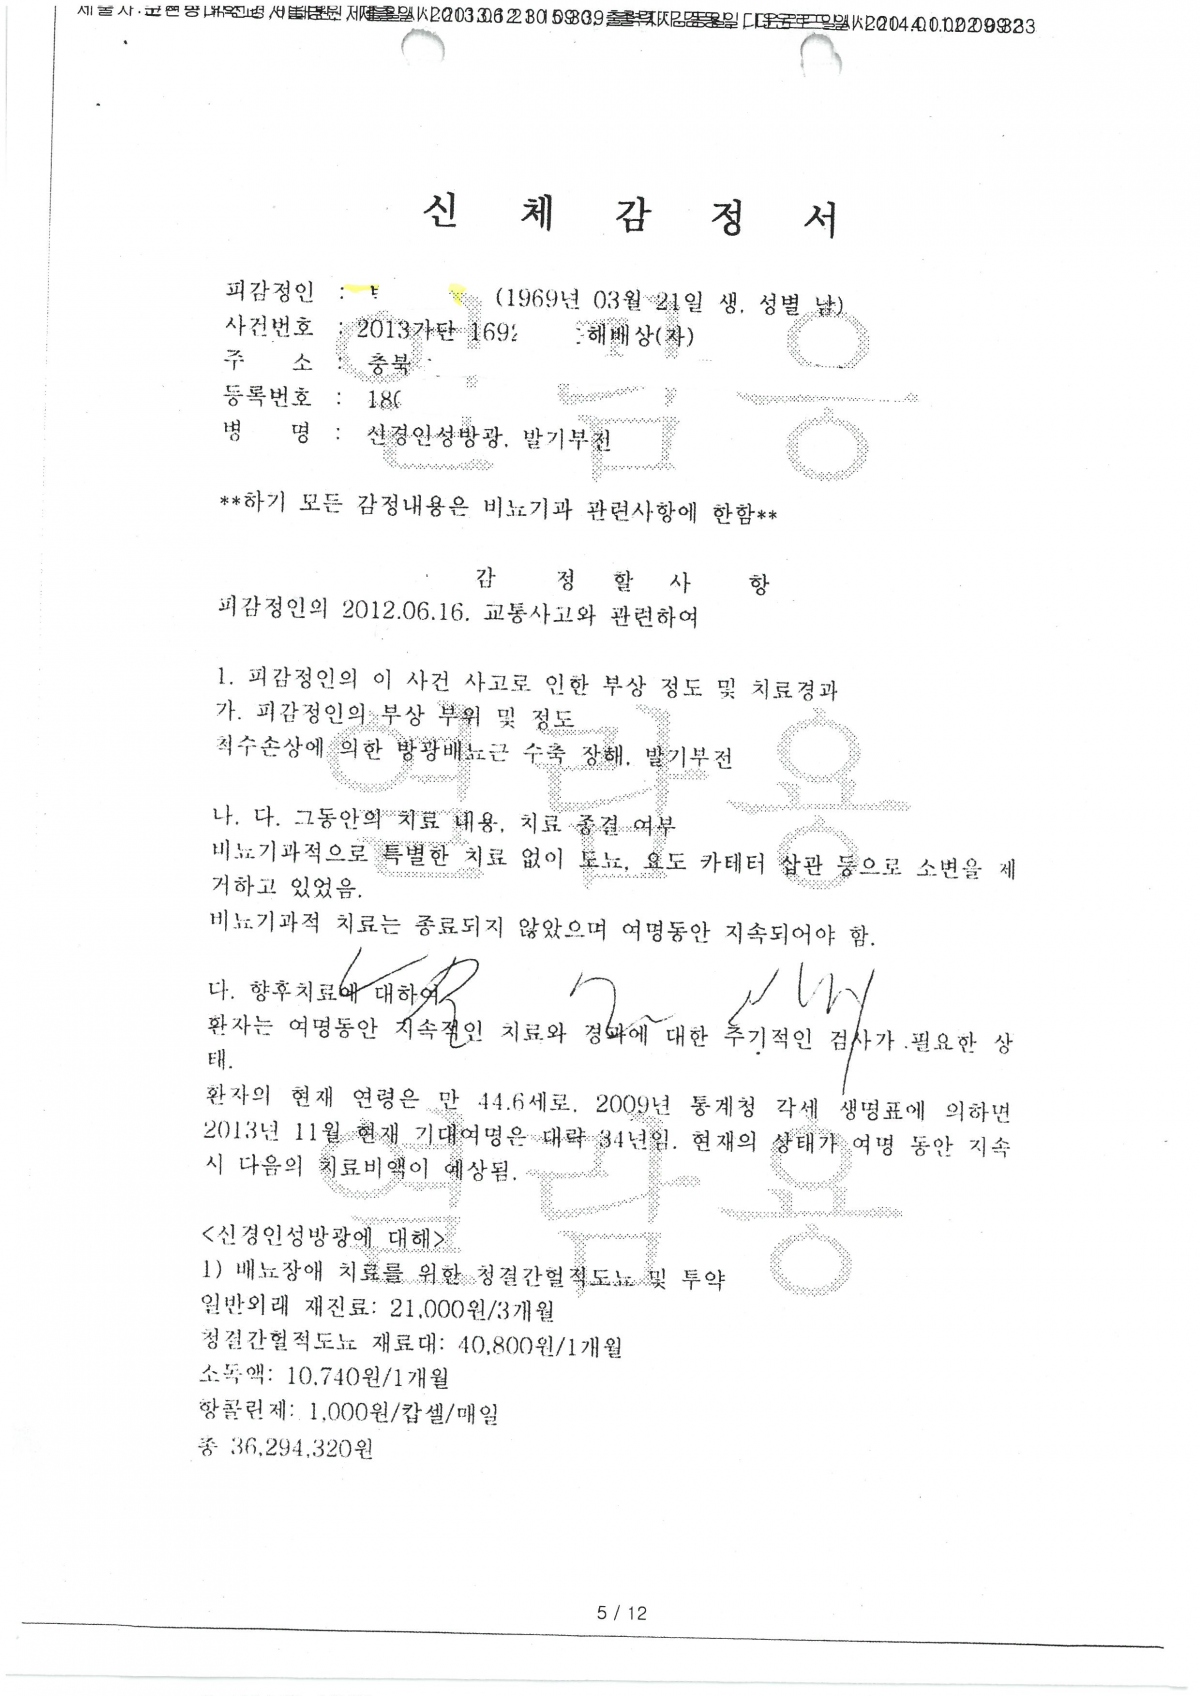 신 체 감 정 서
피감정인 : (1969년 03월 21일 생, 성별 남)
사건번호 : 2013가단 169 해배상(자)
주 소 : 충북
등록번호 : 180
병 명 : 신경인성방광, 발기부전
**하기 모든 감정내용은 비뇨기과 관련사항에 한함**
감 정 할 사 항
피감정인의 2012.06.16. 교통사고와 관련하여
1. 피감정인의 이 사건 사고로 인한 부상 정도 및 치료경과
가. 피감정인의 부상 부위 및 정도
척수손상에 의한 방광배뇨근 수축 장해, 발기부전
나. 다. 그동안의 치료 내용, 치료 종결 여부
비뇨기과적으로 특별한 치료 없이 도뇨, 요도 카테터 삽관 등으로 소변을 제
거하고 있었음.
비뇨기과적 치료는 종료되지 않았으며 여명동안 지속되어야 함.
다. 향후치료에 대하여
환자는 여명동안 지속적인 치료와 경과에 대한 주기적인 검사가 필요한 상
태.
환자의 현재 연령은 만 44.6세로, 2009년 통계청 각세 생명표에 의하면
2013년 11월 현재 기대여명은 대략 34년임. 현재의 상태가 여명 동안 지속
시 다음의 치료비액이 예상됨.
<신경인성방광에 대해>
1) 배뇨장애 치료를 위한 청결간헐적도뇨 및 투약
일반외래 재진료: 21,000원/3개월
청결간헐적도뇨 재료대: 40,800원/1개월
소독액: 10,740원/1개월
항콜린제: 1,000원/캅셀/매일
총 36,294,320원
열람용
열람용
열람용
5 / 12